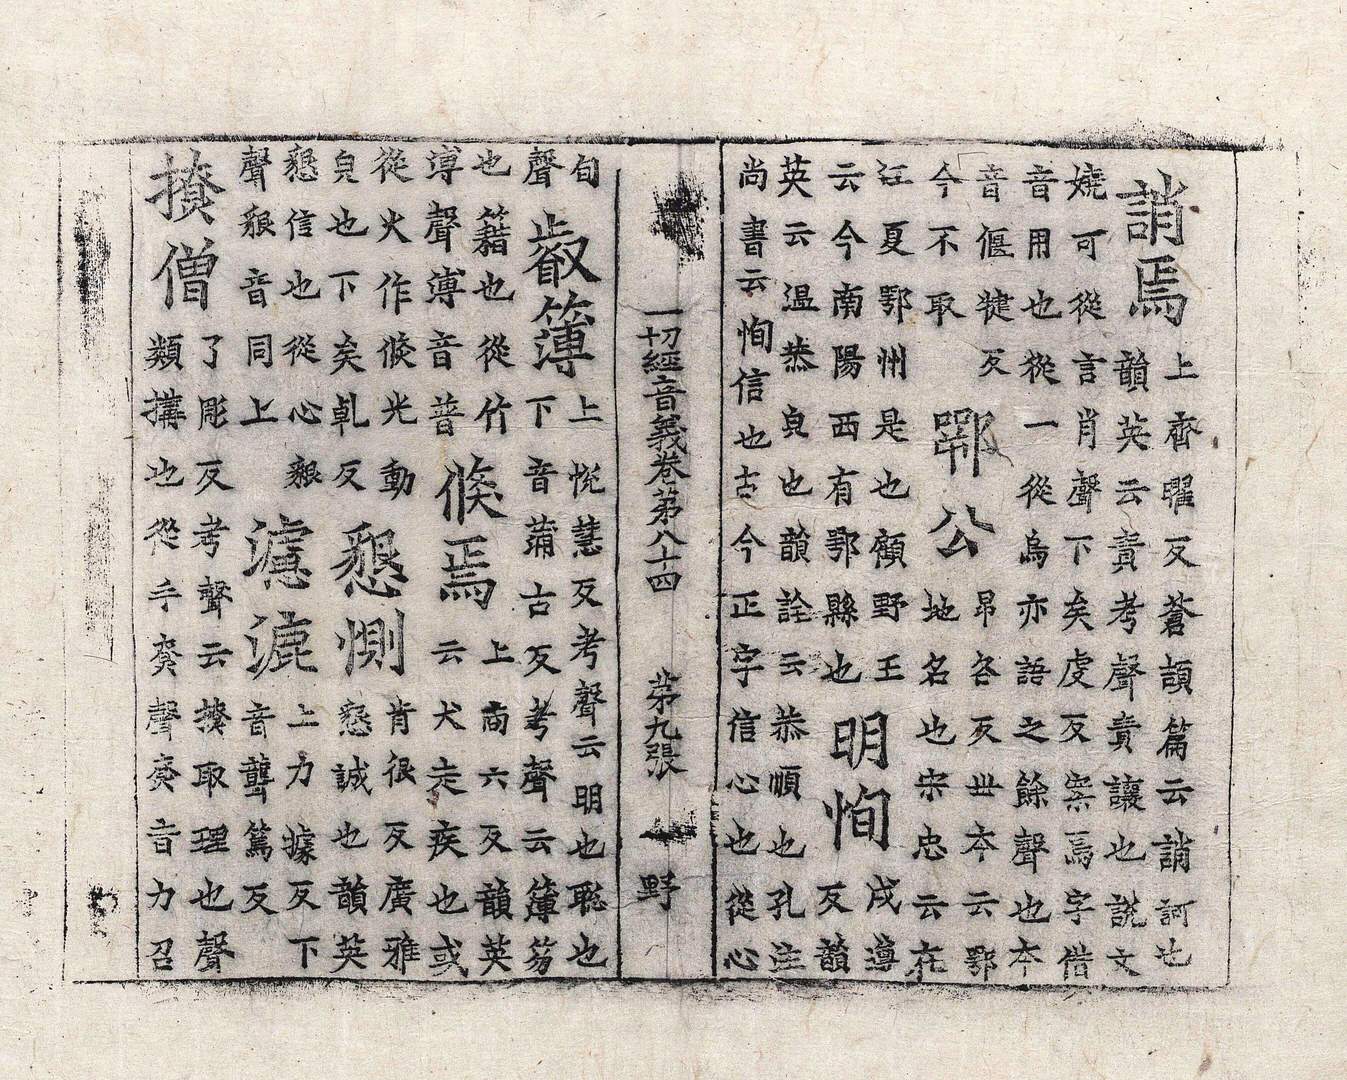 誚焉
上齊曜反蒼頡篇云誚訶也
韻英云責考聲責讓也說文
嬈可從言肖聲下矣虔反案焉字借
音用也從一從烏亦語之餘聲也本
音偃揵反
今不取
鄂公
昂各反世本云鄂
地名也宋忠云在
江夏鄂州是也顧野王
云今南陽西有鄂縣也
明恂
戌遵
反韻
英云温恭皃也韻詮云恭順也孔注
尚書云恂信也古今正字信心也從心
一切經音義卷第八十四 第九張 野
旬
聲
叡簿
上悅慧反考聲云明也聡也
下音蒲古反考聲云簿笏
也籍也從竹
溥聲溥音普
倏焉
上商六反韻英
云犬走疾也或
從火作倏光動
皃也下矣乹反
懇惻
肯很反廣雅
懇誠也韻英
懇信也從心貇
聲貇音同上
濾漉
上力據反下
音聾篤反
撩僧
了彫反考聲云撩取理也聲
類搆也從手尞聲尞音力召